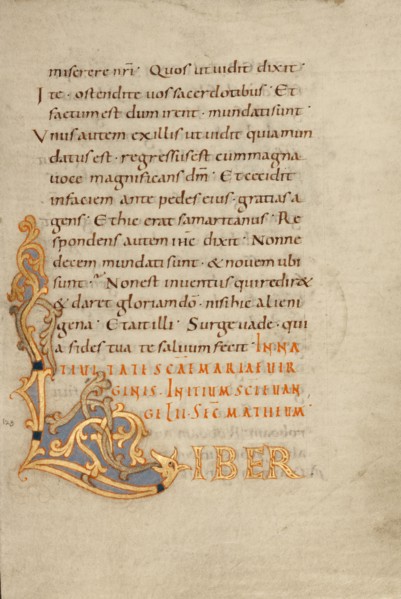 miserere nr̄i · Quos ut uidit dixit ·
Ite · ostendite uos sacerdotibus · Et
factum est dum irent · mundati sunt ·
Vnus autem ex illis ut uidit quia mun
datus est · regressus est cum magna
uoce magnificans dm̄ · Et cecidit
in faciem ante pedes eius · gratias a
gens · Et hic erat samaritanus · Re
spondens autem ih̄c dixit · Nonne
decem mundati sunt · & nouem ubi
sunt · Non est inuentus qui redir&
& dar& gloriam dō · nisi hic alieni
gena · Et ait illi · Surge uade · qui
a fides tua te saluum fecit · IN NA
TIVITATE SC̄AE MARIAE VIR
GINIS · INITIUM SCI EUAN
GELII · SEC̄ MATHEUM
LIBER